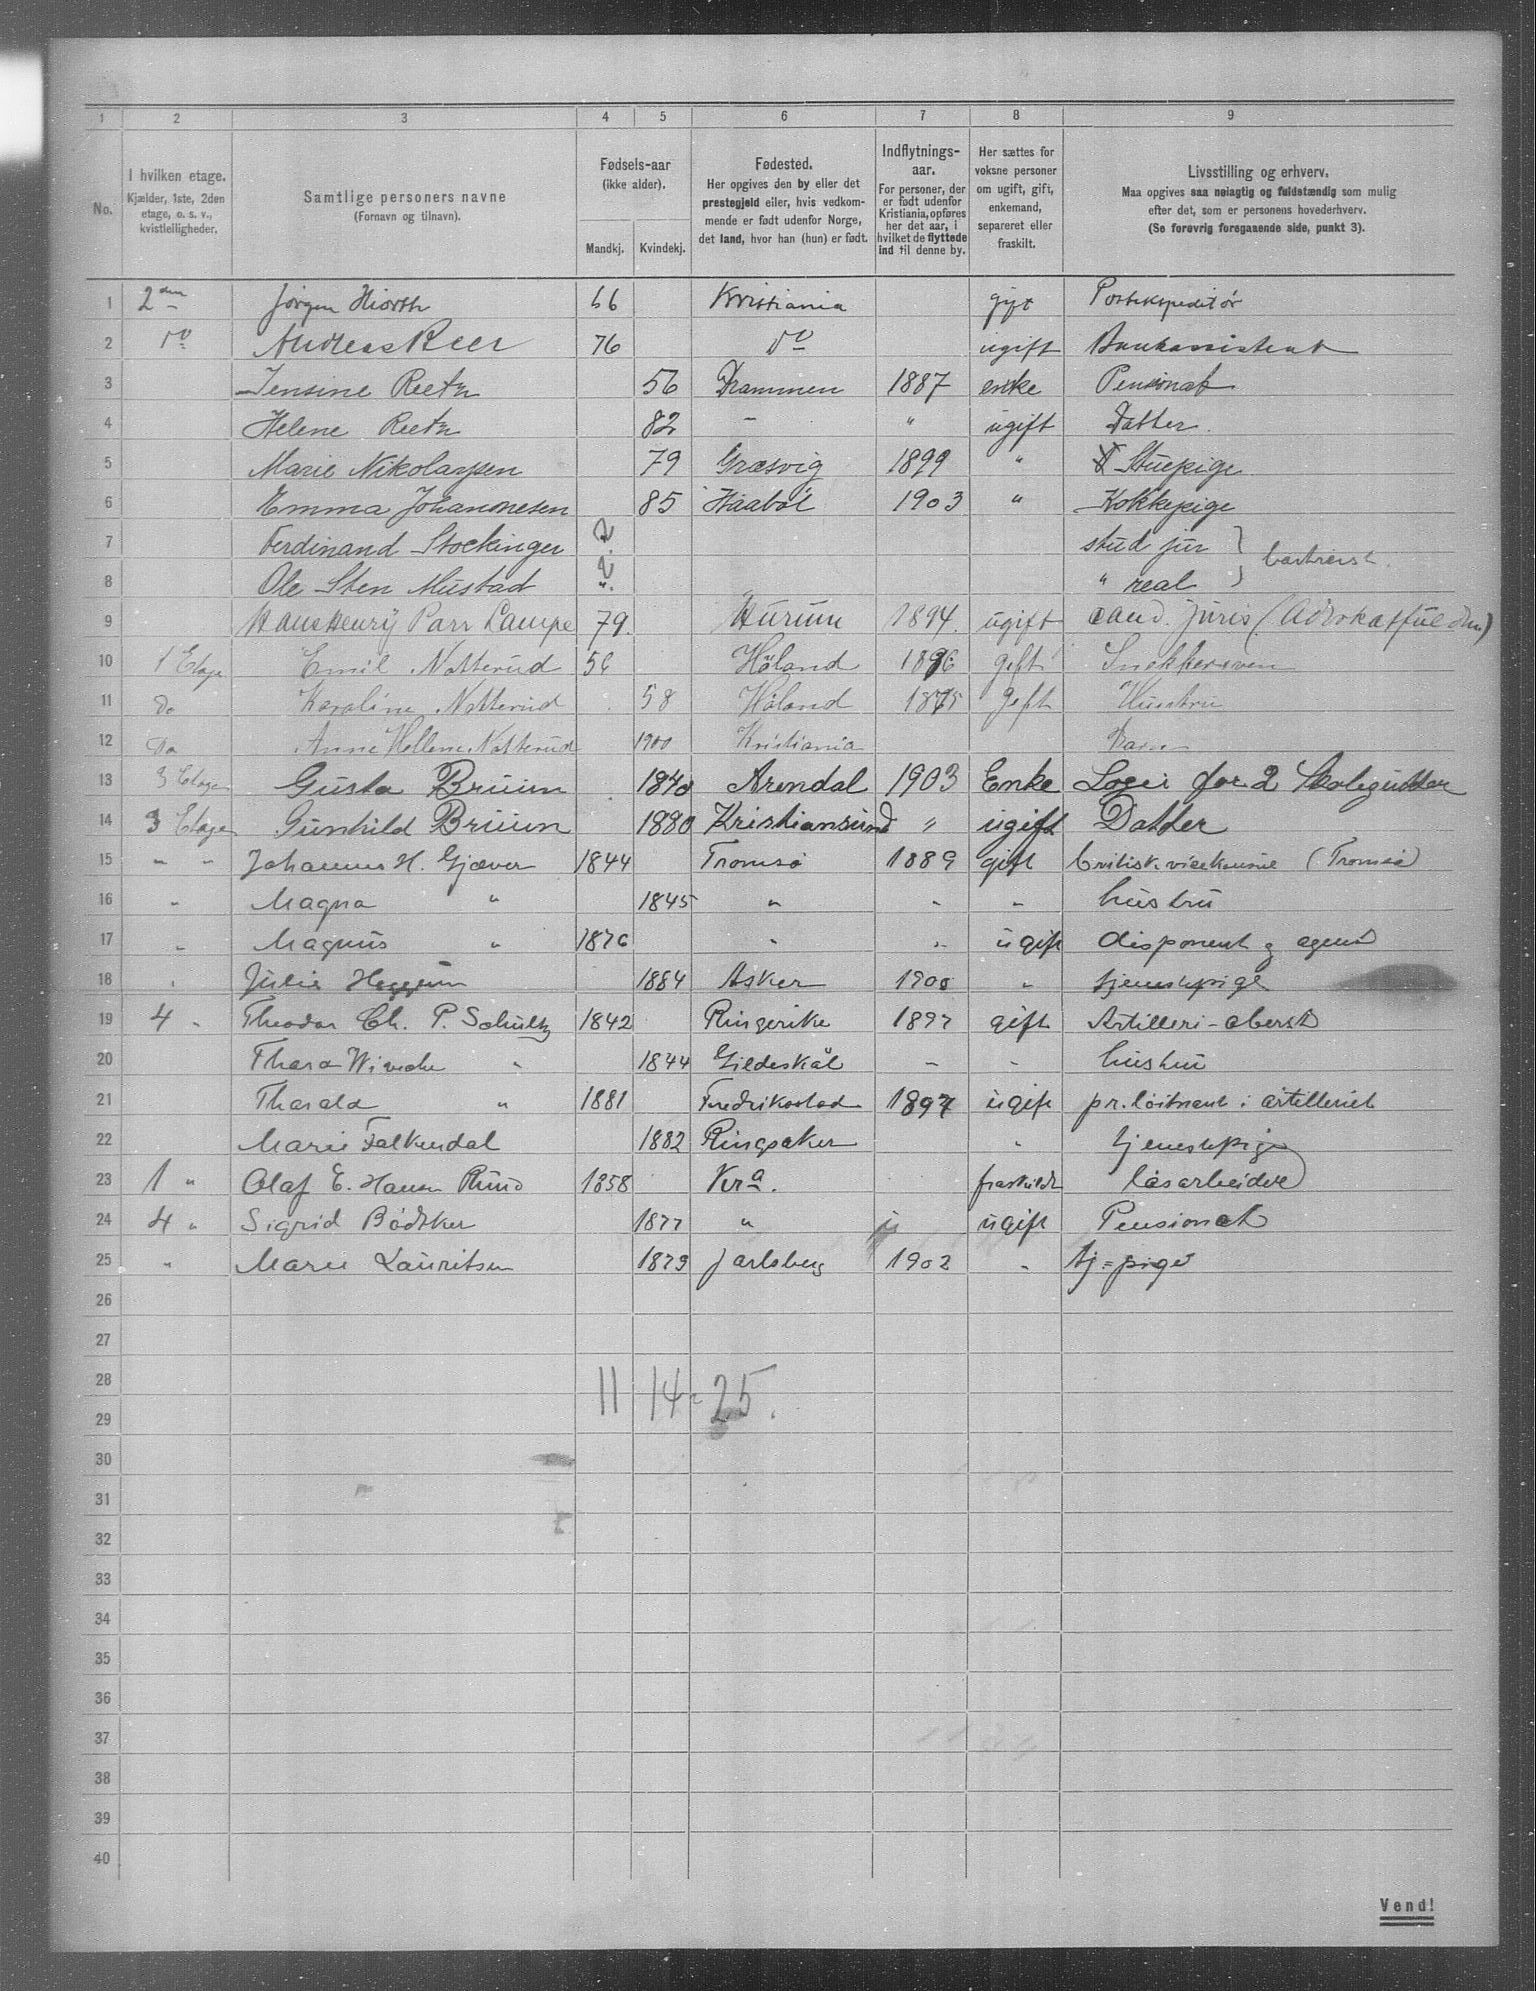 1 2 3 4 5 6 7 8 9
No.
I hvilken etage.
Kjælder, 1ste, 2den
etage, o. s. v.,
kvistleiligheder.
Samtlige personers navne
(Fornavn og tilnavn).
Fødsels-aar
(ikke alder).
Mandkj. Kvindekj.
Fødested.
Her opgives den by eller det
prestegjeld eller, hvis vedkom-
mende er født udenfor Norge,
det land, hvor han (hun) er født.
Indflytnings-
aar.
For personer, der
er født udenfor
Kristiania, opføres
her det aar, i
hvilket de flyttede
ind til denne by.
Her sættes for
voksne personer
om ugift, gift,
enkemand,
separeret eller
fraskilt.
Livsstilling og erhverv.
Maa opgives saa nøiagtig og fuldstændig som mulig
efter det, som er personens hovederhverv.
(Se forøvrig foregaaende side, punkt 3).
1 2den Jørgen Hiorth 66 Kristiania gift Postekspeditør
2 do Anders Reer 76 do ugift Bankassistent
3 Jensine Reetz 56 Drammen 1887 enke Pensionat
4 Helene Reetz 82 - " ugift Datter.
5 Marie Nikolaysen 79 Græsvig 1899 " Stuepige
6 Emma Johannesen 85 Haabøl 1903 " Kokkepige
7 Ferdinand Stockinger ? stud jur }
8 Ole Sten Mustad "?. " real }
9 Hans Henrÿ Parr Lampe 79. Hurum 1894. ugift cand. juris (Advokatfuldm)
10 1 Etage Emil Natterud 56 Høland 1896 gift Snekkersven
11 Do Karoline Natterud 58 Høland 1875 Gift Hustru
12 Do Anne Hellene Natterud 1900 Kristiania Barn
13 3 Etage Gusta Bruun 1840 Arendal 1903 Enke Logi for 2 Skolegutter
14 3 Etage Gunhild Bruun 1880 Kristiansund " ugift Datter
15 " " Johannes H. Gjæver 1844 Tromsø 1889 gift britisk vicekonsul (Tromsø)
16 " Magna " 1845 " " " hustru
17 " Magnus " 1876 " " ugift disponent og agent
18 " Julie Heggum 1884 Asker 1900 " tjenestepige
19 4 " Theodor Ch. P. Schultz 1842 Ringerike 1897 gift Artilleri-oberst
20 Thora Wivecke " 1844 Gildeskål - - hustru
21 Tharald " 1881 Fredrikstad 1897 ugift pr. løitnant i artilleriet
22 Marie Falkendal 1882 Ringsaker " tjenestepige
23 1 " Olaf E. Hansen Rund 1858 Kra. fraskildt løsarbeider
24 4 " Sigrid Bødtker 1877 " ugift Pensionat
25 " Marie Lauritsen 1879 Jarlsberg 1902 " tj=pige
26
27
28 11 14 = 25.
29
30
31
32
33
34
35
36
37
38
39
40
Vend!